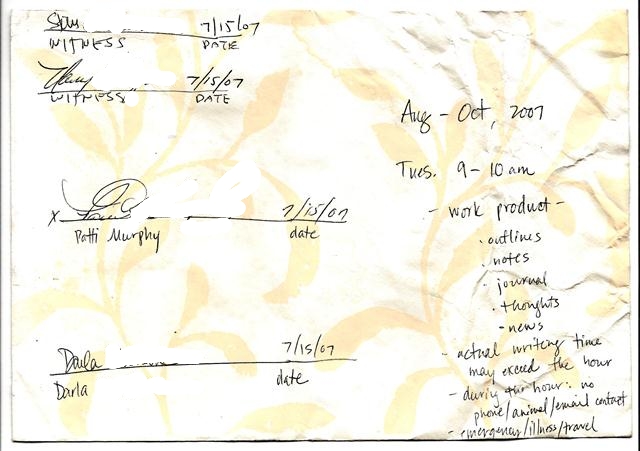 7/15/07
WITNESS DATE
7/15/07
WITNESS DATE
x 7/15/07
Patti Murphy date
Darla 7/15/07
Darla date
Aug - Oct, 2007
Tues. 9-10 am
- work product -
. outlines
. notes
. journal
. thoughts
- news
- actual writing time
may exceed the hour
- during the hour: no
phone/animal/email contact
- emergency/illness/travel